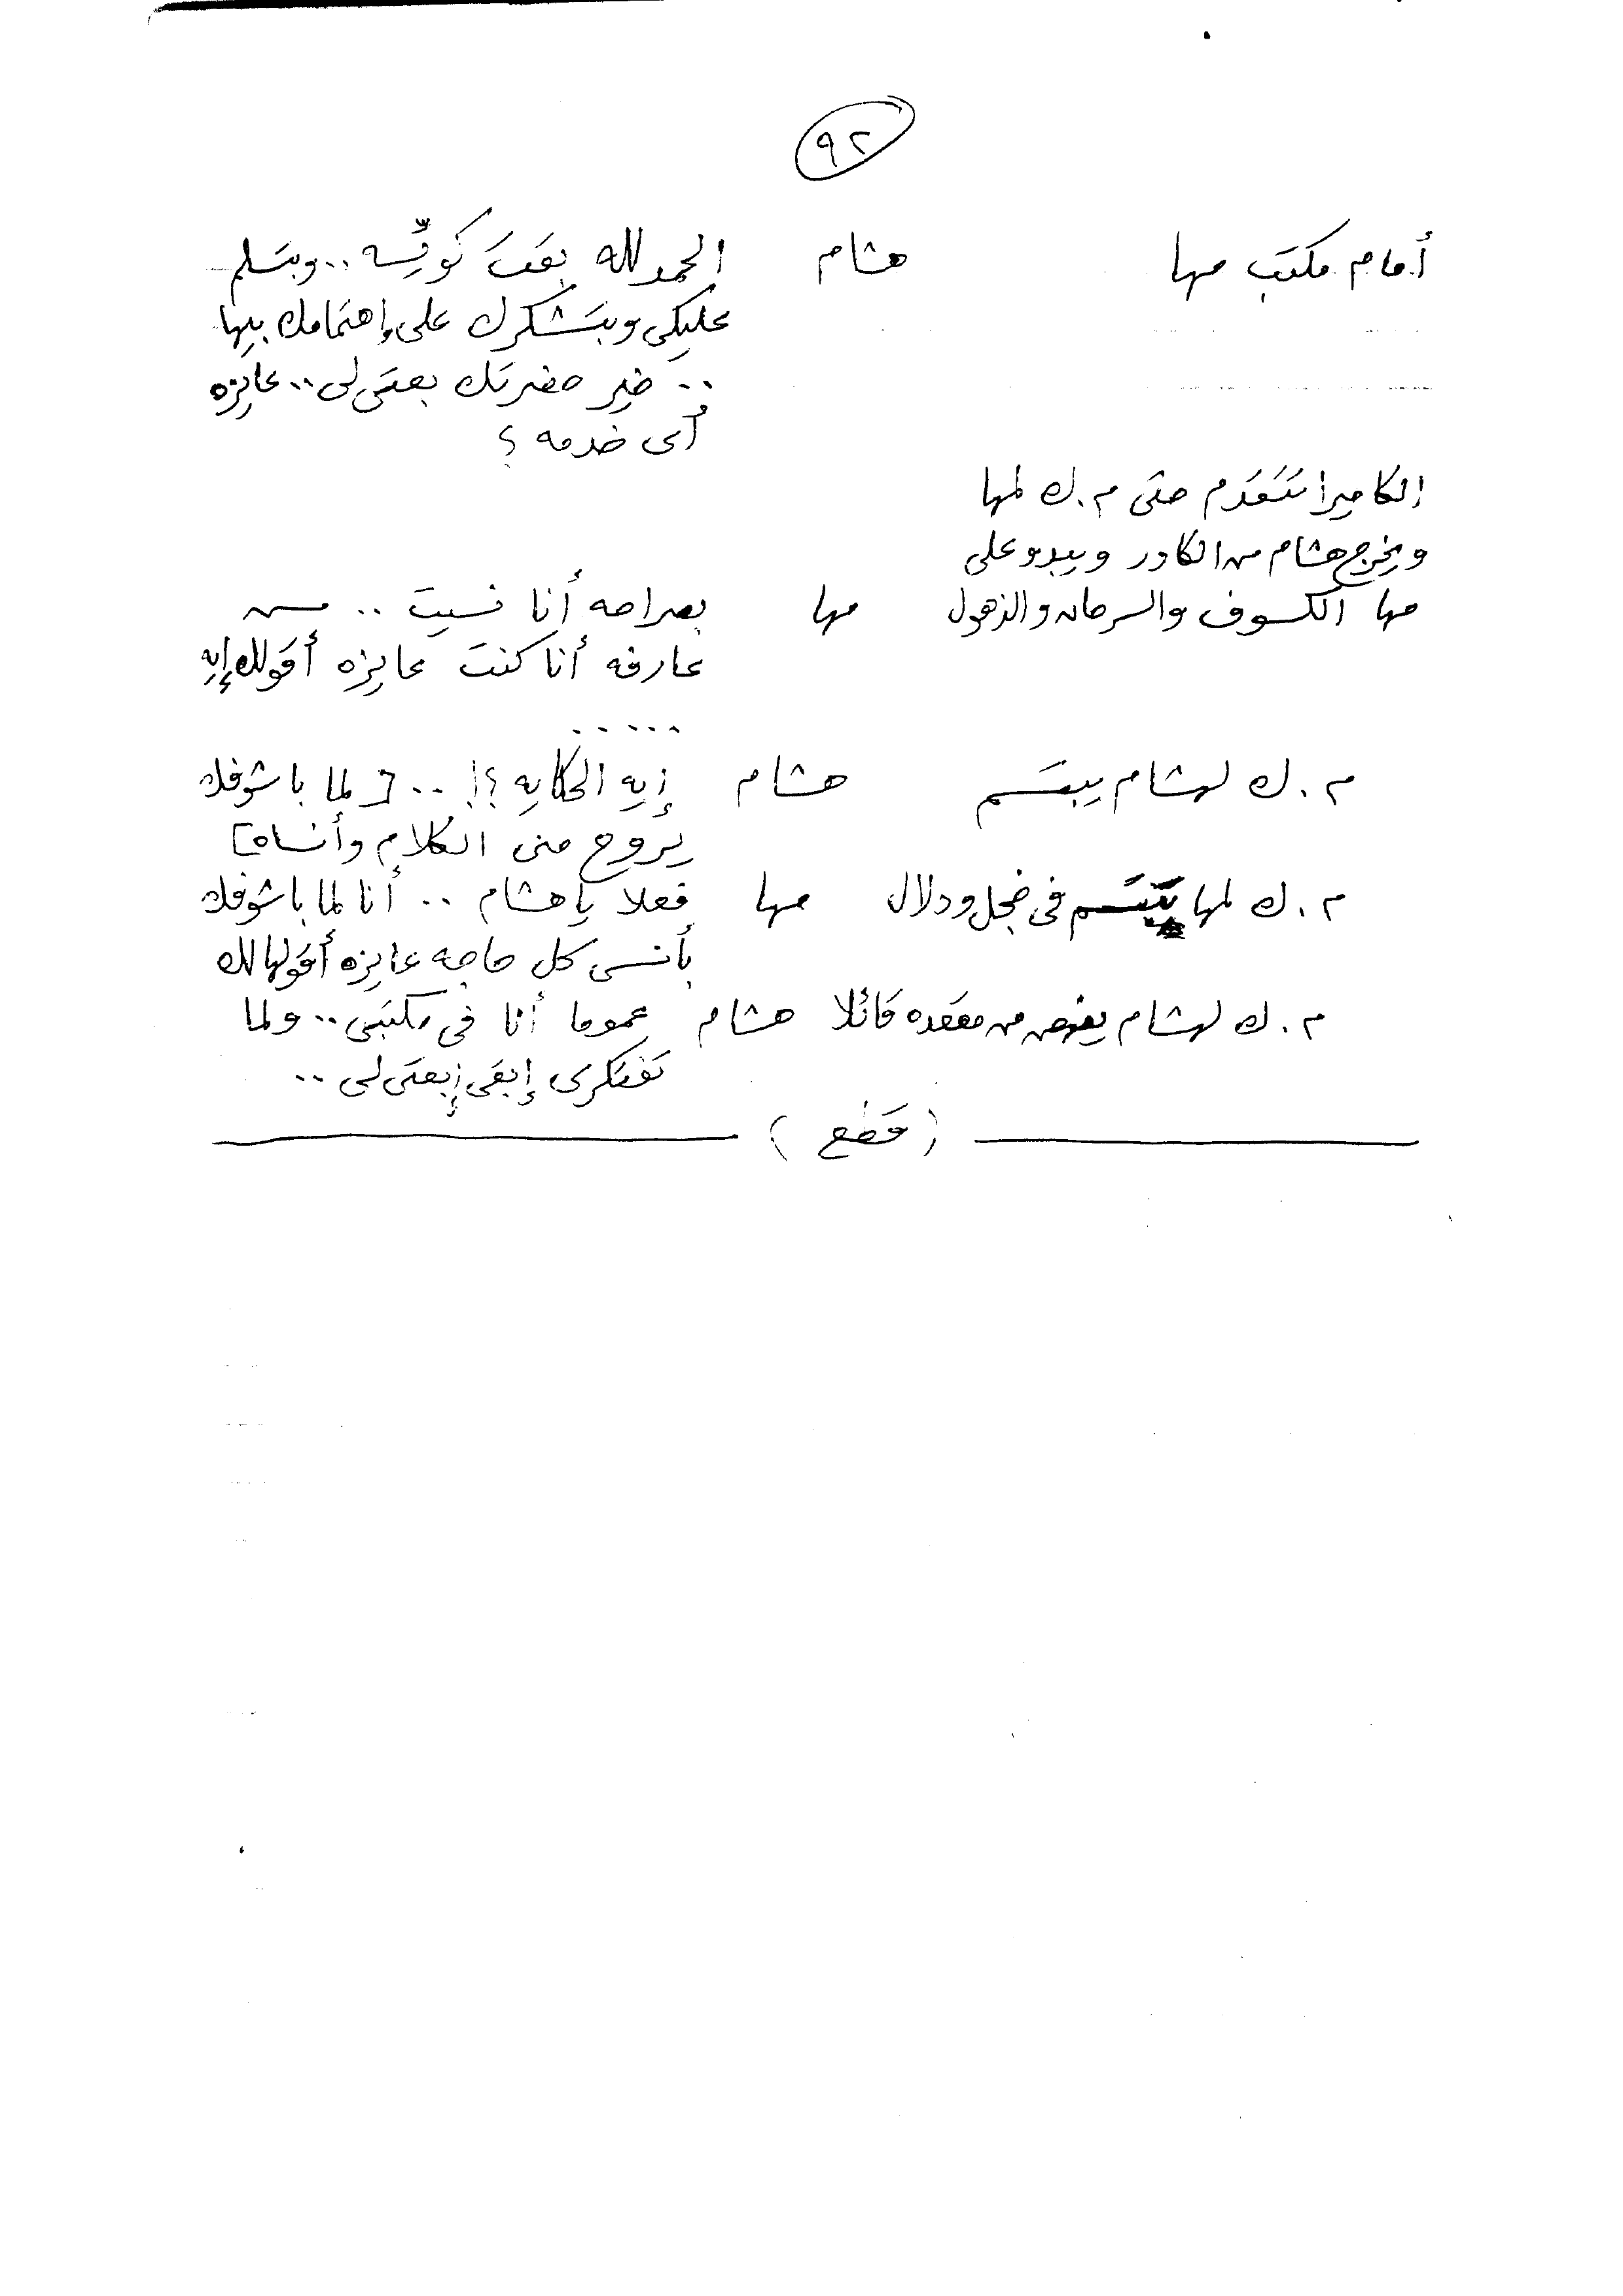 ٩٢
أمام مكتب مها هشام الحمد لله بقت كويِّسه .. وبتسلم
عليكى وبتشكرك على إهتمامك بيها
.. خير حضرتك بعتى لى .. عايزه
أى خدمه ؟
الكاميرا تتقدم حتى م . ك لمها
ويخرج هشام من الكادر ويبدو على
مها الكسوف والسرحان والذهول مها بصراحه أنا نسيت .. مش
عارفه أنا كنت عايزه أقولك إيه
.....
م . ك لهشام يبتسم هشام إيه الحكايه ؟! .. [ لما باشوفك
يروح منى الكلام وأنساه ]
م . ك لمها تبتسم فى خجل ودلال مها فعلا يا هشام .. أنا لما باشوفك
بأنسى كل حاجه عايزه أقولها لك
م . ك لهشام ينهض من مقعده قائلا هشام عموما أنا فى مكتبى .. ولما
تفتكرى إبقى إبعتى لى ..
( قطع )